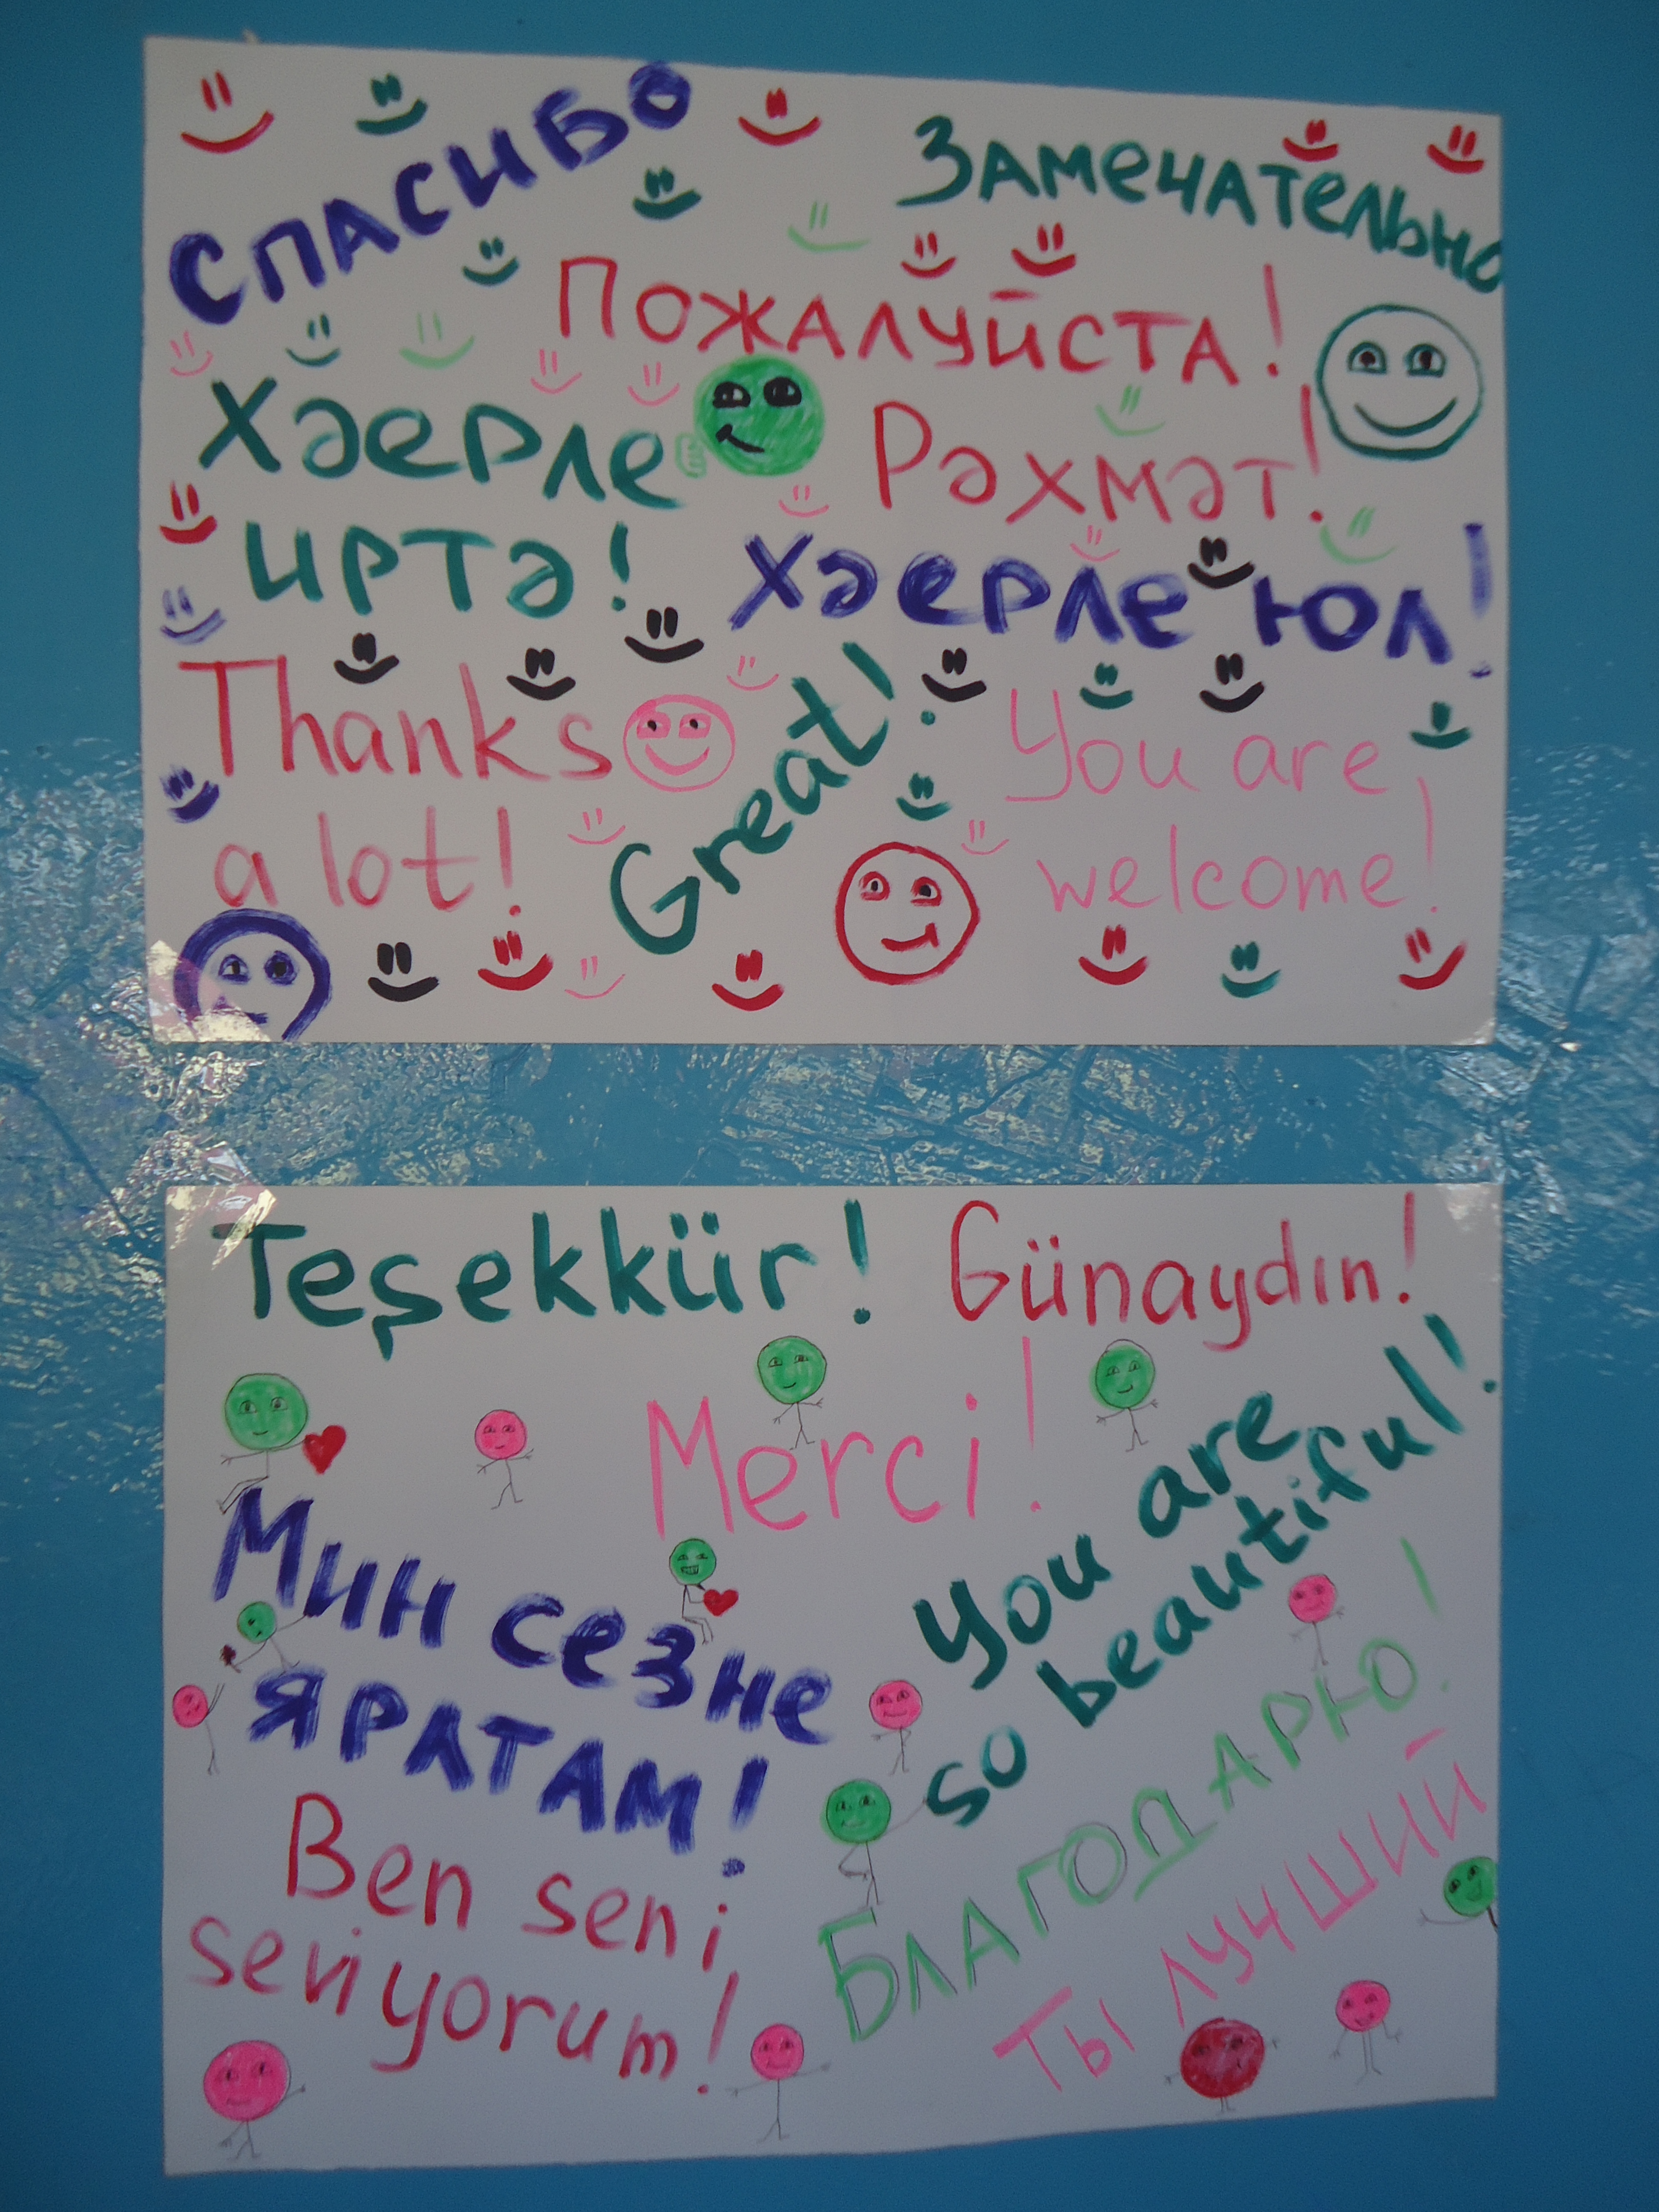 Спасибо
Замечательно
Пожалуйста!
Хәерле
иртә!
Рәхмәт!
Хәерле юл!
Thanks
a lot!
Great!
You are
welcome!
Teşekkür!
Günaydın!
Merci!
You are
so beautiful!
Мин сезне
яратам!
Ben seni
seviyorum!
Благодарю!
Ты лучший